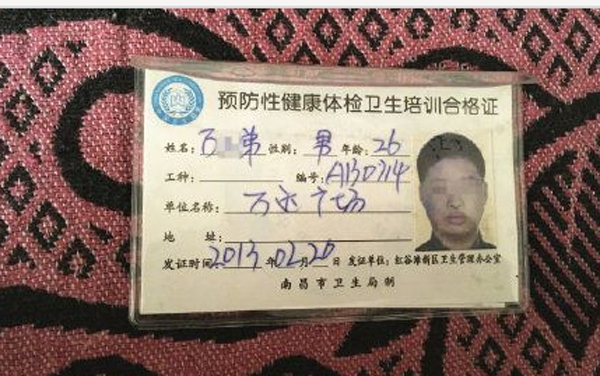 预防性健康体检卫生培训合格证
姓名: 万 弟 性别: 男 年龄: 26
工种: 编号: A130714
单位名称: 万达广场
地 址:
发证时间 2013 年 02 月 20 日 发证单位: 红谷滩新区卫生管理办公室
南昌市卫生局制